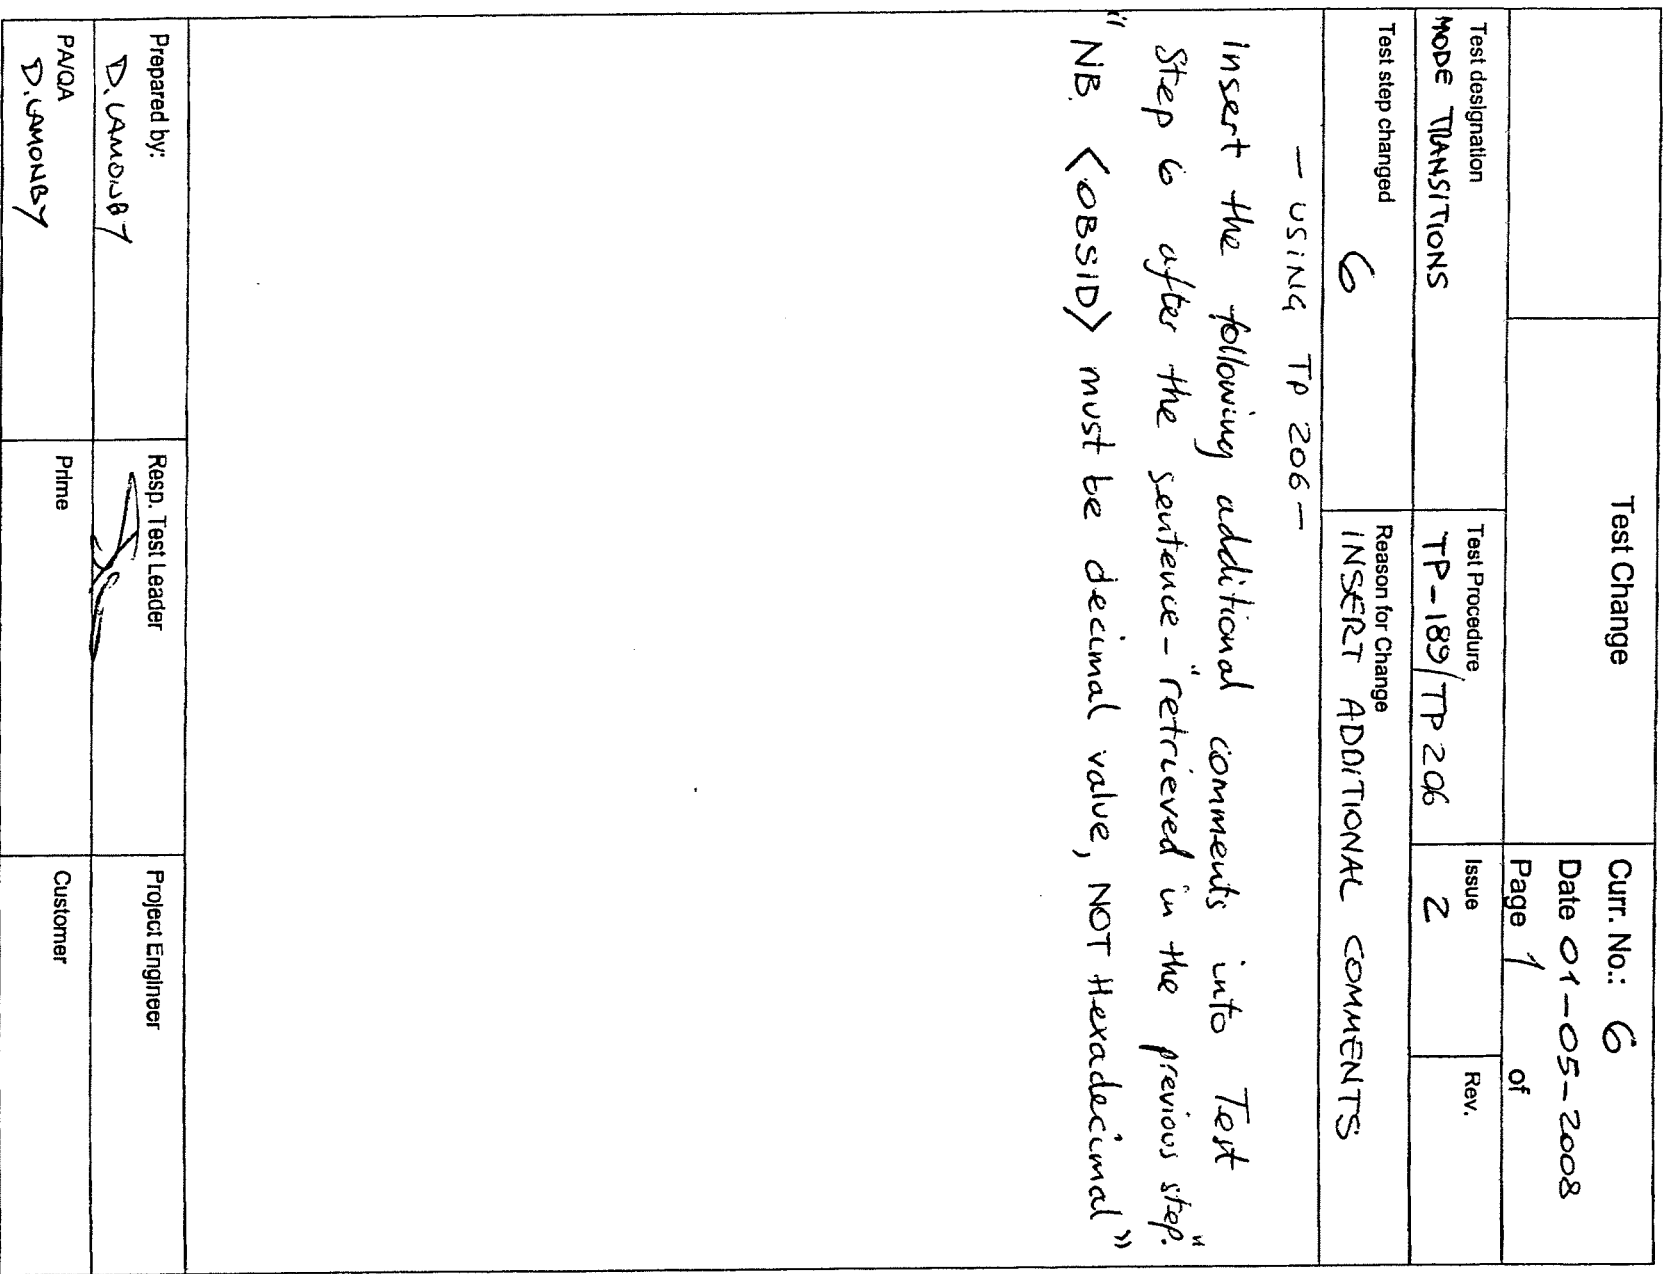 Test Change
Curr. No.: 6
Date 01-05-2008
Page 1 of
Test designation
MODE TRANSITIONS
Test Procedure
TP-189/TP206
Issue
2
Rev.
Test step changed
6
Reason for Change
INSERT ADDITIONAL COMMENTS
- USING TP 206 -
Insert the following additional comments into Test
Step 6 after the sentence - "retrieved in the previous step."
"NB. <OBSID> must be decimal value, NOT Hexadecimal"
Prepared by:
D. LAMONBY
Resp. Test Leader
Project Engineer
PA/QA
D. LAMONBY
Prime
Customer